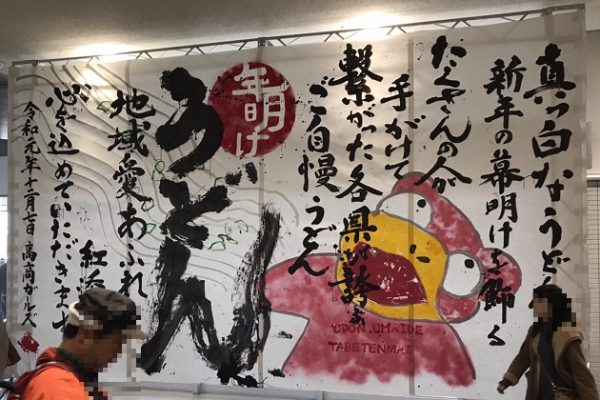 真っ白なうどん
新年の幕明けを飾る
たくさんの人が
手がけて
繋がった各県が誇る
ご自慢うどん
年明け
うどん
地域愛あふれ
紅添
心を込めていただきます
令和元年十二月七日 高商ガールズ
UDON.UMAIDE
TABETENMAI